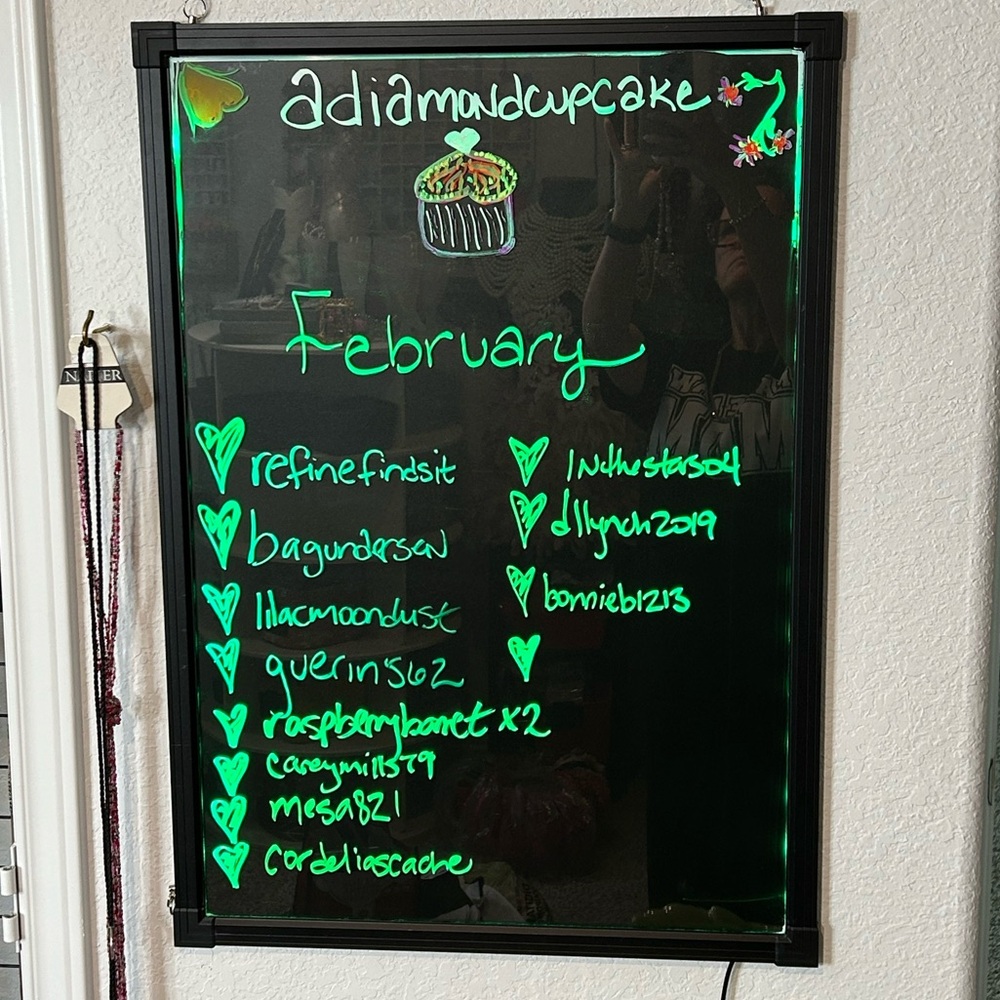 adiamondcupcake
February
refinefindsit
bagundersen
lilacmoondust
guerin562
raspberryberet x2
careymills79
mesa821
cordeliascache
inthestars04
dllynch2019
bonnieb1213